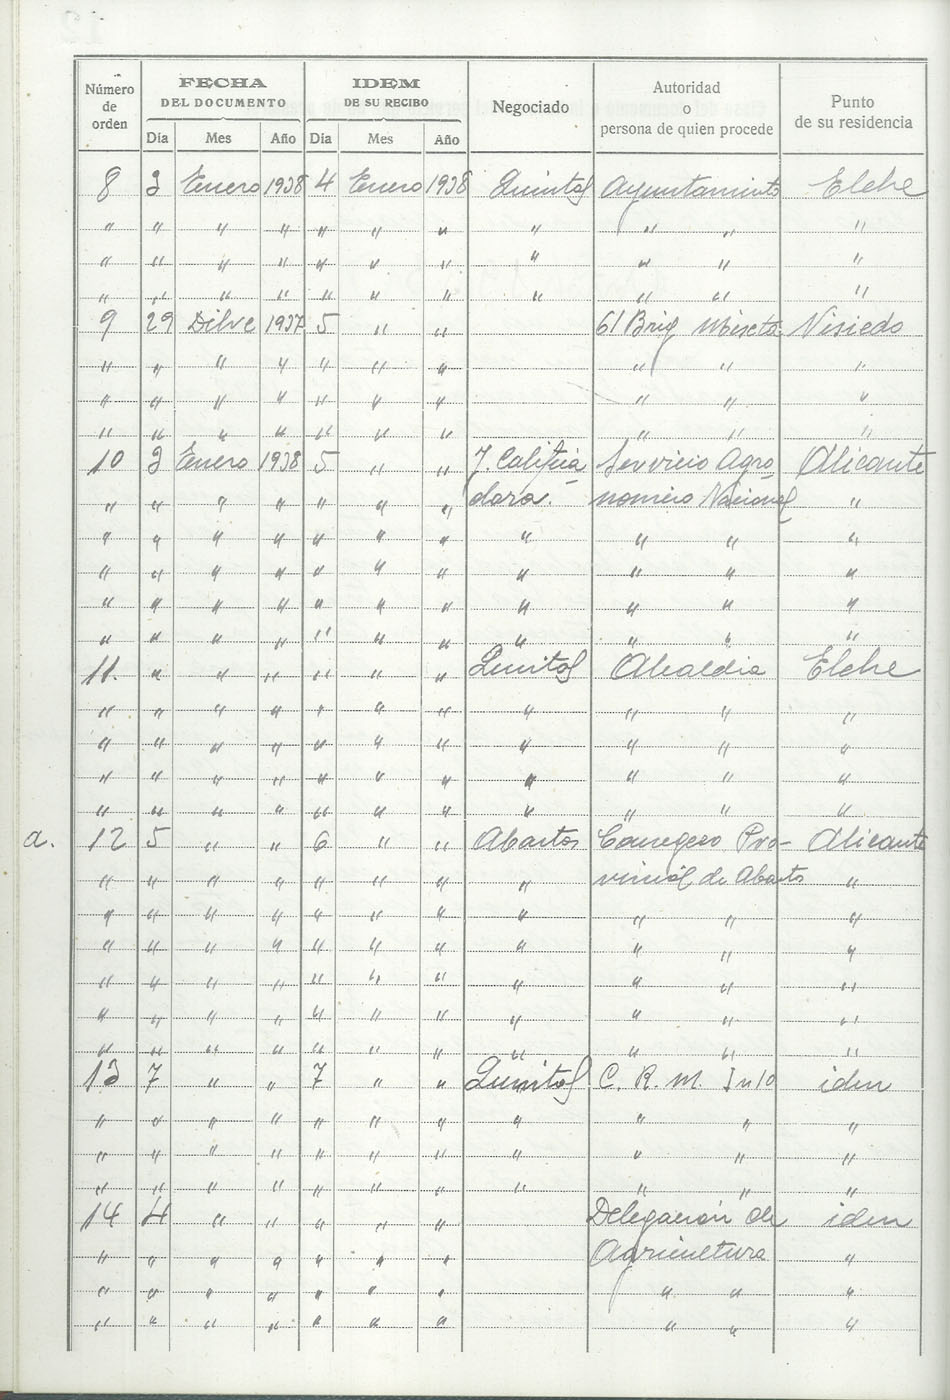 Número de orden | FECHA DEL DOCUMENTO | IDEM DE SU RECIBO | Negociado | Autoridad o persona de quien procede | Punto de su residencia
Día | Mes | Año | Día | Mes | Año
8 | 3 | Enero | 1938 | 4 | Enero | 1938 | Quintas | Ayuntamiento | Elche
" | " | " | " | " | " | " | " | " " | "
" | " | " | " | " | " | " | " | " " | "
" | " | " | " | " | " | " | " | " " | "
9 | 29 | Dibre | 1937 | 5 | " | " | | 61 Brig Mixta | Visiedo
" | " | " | " | " | " | " | | " " | "
" | " | " | " | " | " | " | | " " | "
" | " | " | " | " | " | " | | " " | "
10 | 3 | Enero | 1938 | 5 | " | " | J. Califica | Servicio Agro | Alicante
" | " | " | " | " | " | " | dora. | nomico Nacional | "
" | " | " | " | " | " | " | " | " " | "
" | " | " | " | " | " | " | " | " " | "
" | " | " | " | " | " | " | " | " " | "
" | " | " | " | " | " | " | " | " " | "
11. | " | " | " | " | " | " | Quintas | Alcaldia | Elche
" | " | " | " | " | " | " | " | " " | "
" | " | " | " | " | " | " | " | " " | "
" | " | " | " | " | " | " | " | " " | "
" | " | " | " | " | " | " | " | " " | "
a. 12 | 5 | " | " | 6 | " | " | Abastos | Consegero Pro- | Alicante
" | " | " | " | " | " | " | " | vincial de Abasts | "
" | " | " | " | " | " | " | " | " " | "
" | " | " | " | " | " | " | " | " " | "
" | " | " | " | " | " | " | " | " " | "
" | " | " | " | " | " | " | " | " " | "
" | " | " | " | " | " | " | " | " " | "
13 | 7 | " | " | 7 | " | " | Quintas | C. R. M. I nº 10 | iden
" | " | " | " | " | " | " | " | " " | "
" | " | " | " | " | " | " | " | " " | "
" | " | " | " | " | " | " | " | " " | "
14 | 4 | " | " | " | " | " | | Delegación de | iden
" | " | " | " | " | " | " | | Agricultura | "
" | " | " | " | " | " | " | | " " | "
" | " | " | " | " | " | " | | " " | "